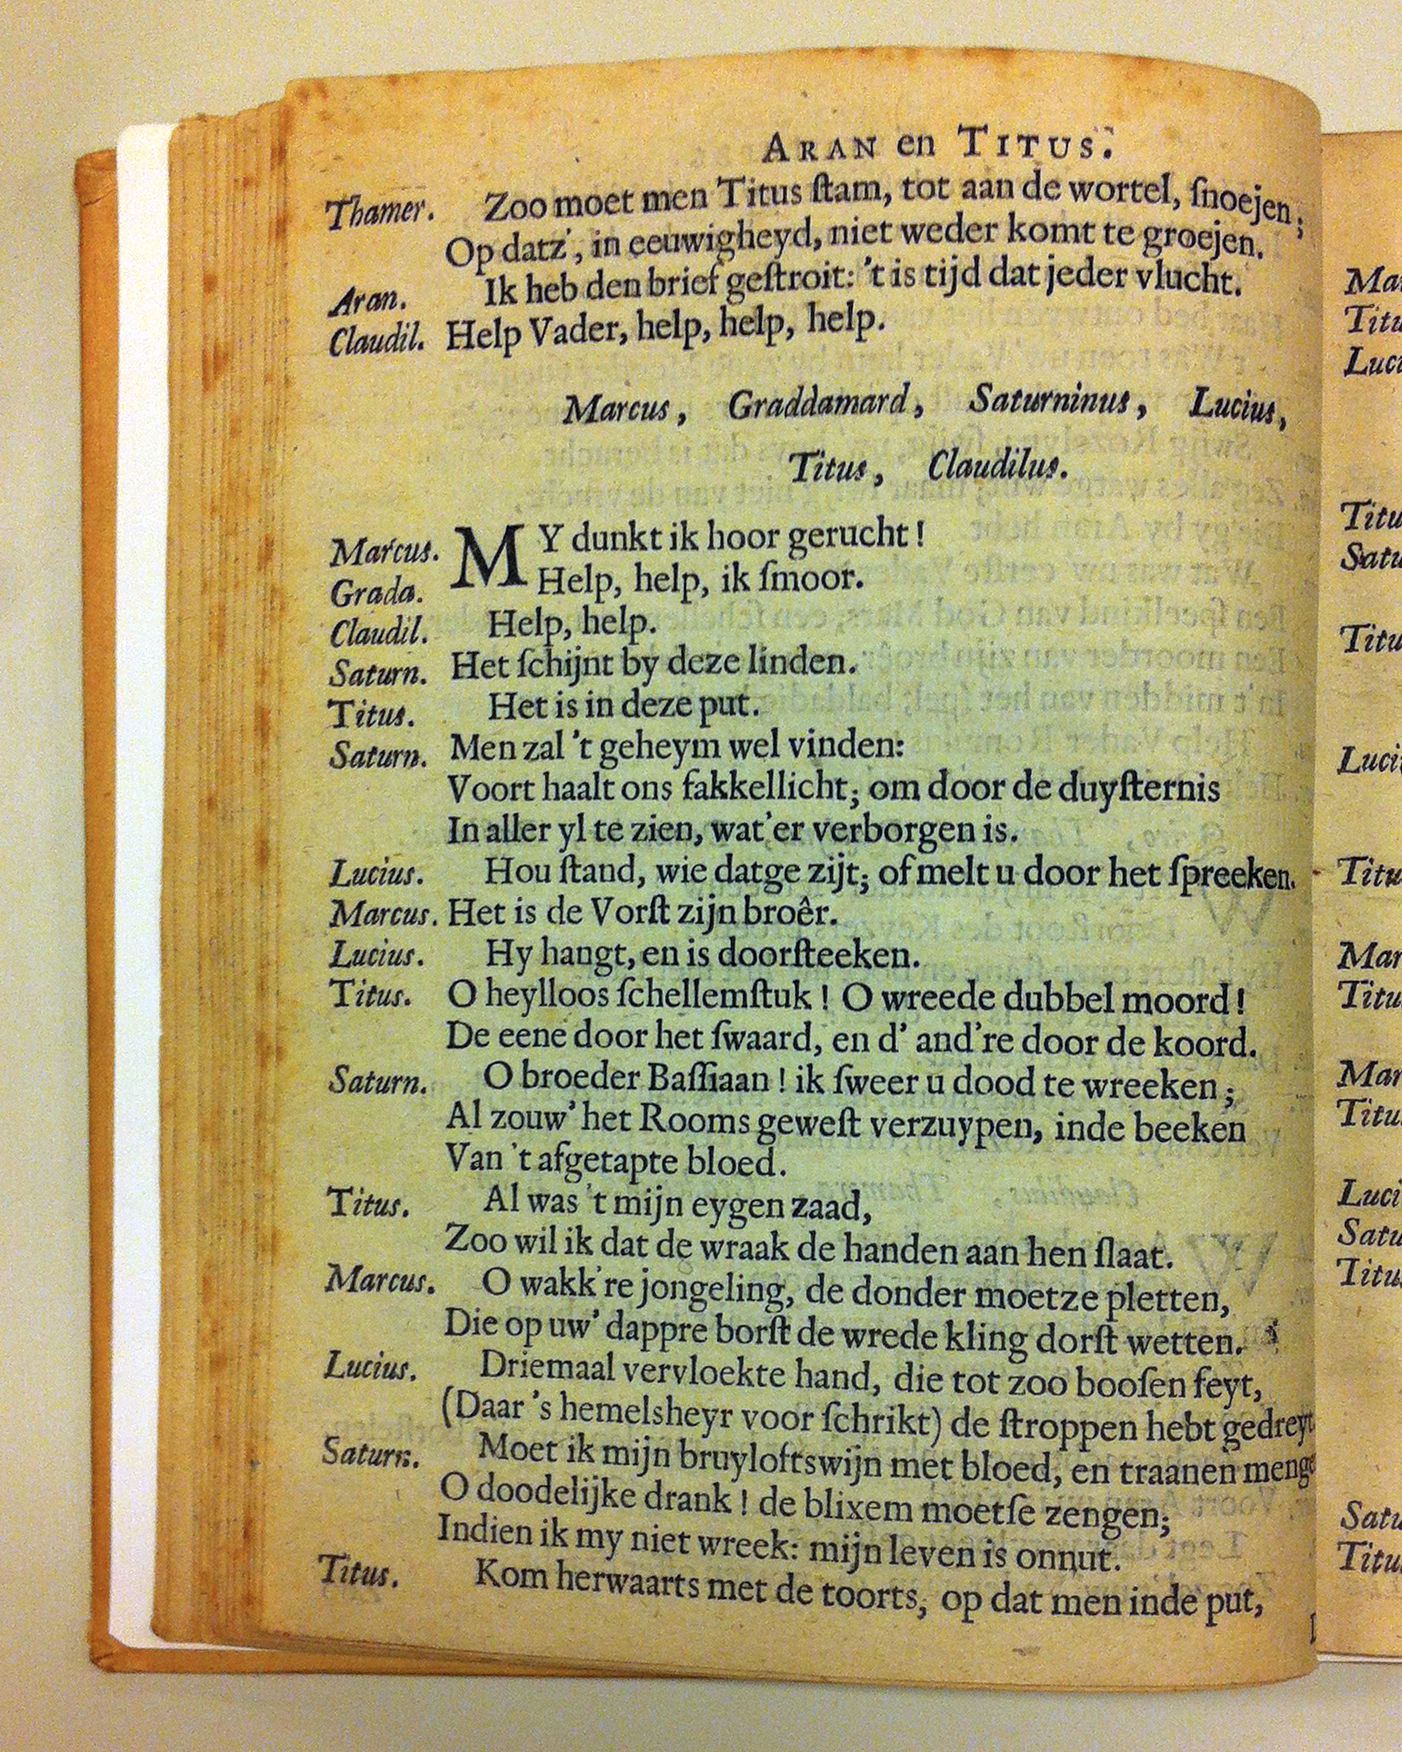 ARAN en TITUS.
Thamer. Zoo moet men Titus ſtam, tot aan de wortel, ſnoejen;
Op datz', in eeuwigheyd, niet weder komt te groejen.
Aran. Ik heb den brief geſtroit: 't is tijd dat jeder vlucht.
Claudil. Help Vader, help, help, help.
Marcus, Graddamard, Saturninus, Lucius,
Titus, Claudilus.
Marcus. MY dunkt ik hoor gerucht!
Grada. Help, help, ik ſmoor.
Claudil. Help, help.
Saturn. Het ſchijnt by deze linden.
Titus. Het is in deze put.
Saturn. Men zal 't geheym wel vinden:
Voort haalt ons fakkellicht; om door de duyſternis
In aller yl te zien, wat'er verborgen is.
Lucius. Hou ſtand, wie datge zijt; of melt u door het ſpreeken.
Marcus. Het is de Vorſt zijn broêr.
Lucius. Hy hangt, en is doorſteeken.
Titus. O heylloos ſchellemſtuk! O wreede dubbel moord!
De eene door het ſwaard, en d' and're door de koord.
Saturn. O broeder Baſſiaan! ik ſweer u dood te wreeken;
Al zouw' het Rooms geweſt verzuypen, inde beeken
Van 't afgetapte bloed.
Titus. Al was 't mijn eygen zaad,
Zoo wil ik dat de wraak de handen aan hen ſlaat.
Marcus. O wakk're jongeling, de donder moetze pletten,
Die op uw' dappre borſt de wrede kling dorſt wetten.
Lucius. Driemaal vervloekte hand, die tot zoo booſen feyt,
(Daar 's hemelsheyr voor ſchrikt) de ſtroppen hebt gedreyt
Saturn. Moet ik mijn bruyloftswijn met bloed, en traanen menge
O doodelijke drank! de blixem moetſe zengen;
Indien ik my niet wreek: mijn leven is onnut.
Titus. Kom herwaarts met de toorts, op dat men inde put,
Titu
Luci
Titu
Satu
Titu
Luci
Titu
Mar
Titu
Mar
Titu
Luci
Satu
Titu
Satu
Titu